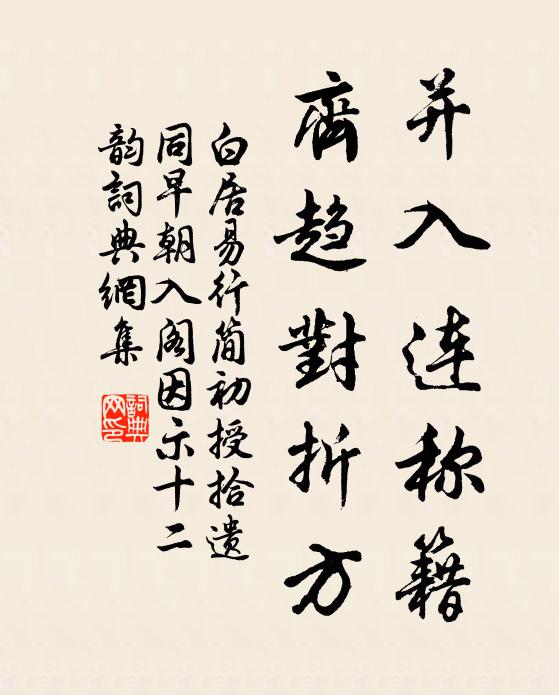 并入连称籍
齊趋對折方
白居易行简初授拾遗
同早朝入阁因示十二
韵詞典網集
詞典网印